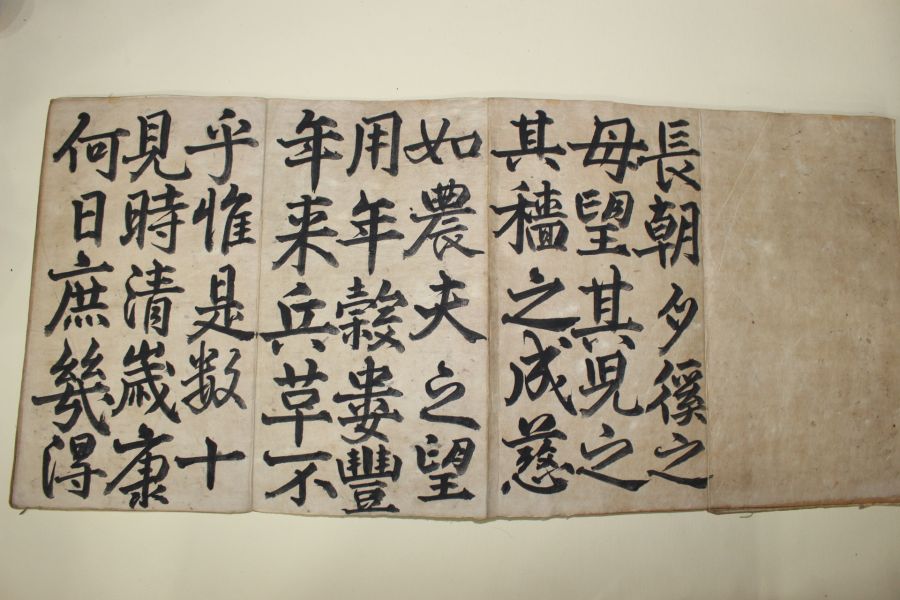 長朝夕徯之
母望其兒之
其穡之成慈
如農夫之望
用年穀婁豐
年来兵革不
乎惟是数十
見時清歲康
何日庶幾得